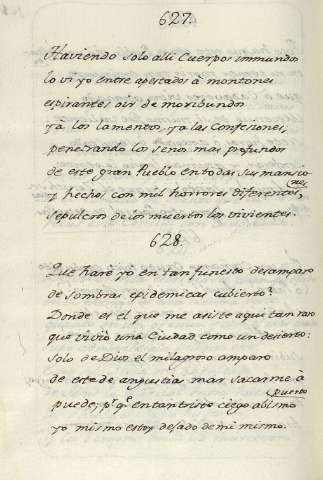 627.
Haviendo solo alli Cuerpos immundos
lo vi yo entre apestados à montones
espirantes oir de moribundos
yà los lamentos, ya las Confesiones,
penetrando los senos mas profundos
de este gran Pueblo en todas sus mansio
nes
y hechos con mil horrores diferentes,
sepulcros de los muertos los vivientes.
628.
Que harè yo en tan funesto desamparo
de sombras epidemicas cubierto?
Donde es el que me asiste aqui tan raro
que vivio una Ciudad como un desierto:
solo de Dios el milagroso amparo
de este de angustias mar sacarme à
puerto
puede; pr. qe. en tan triste ciego abismo
yo mismo estoy dejado de mi mismo.